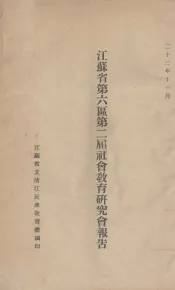 二十二年十一月
江蘇省第六區第二屆社會教育研究會報告
江蘇省立清江民衆教育館編印